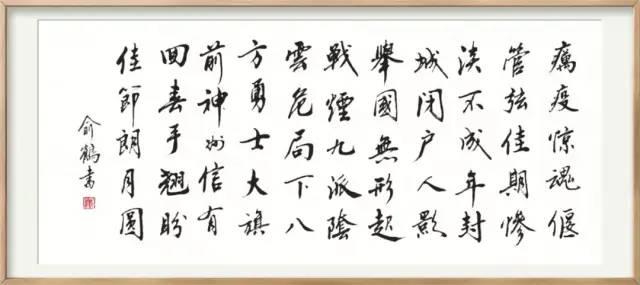 癘疫惊魂偃
管弦佳期慘
淡不成年封
城闭户人影
舉國無形起
戰煙九派陰
雲危局下八
方勇士大旗
前神州信有
回春手翘盼
佳節朗月圓
俞鶴書